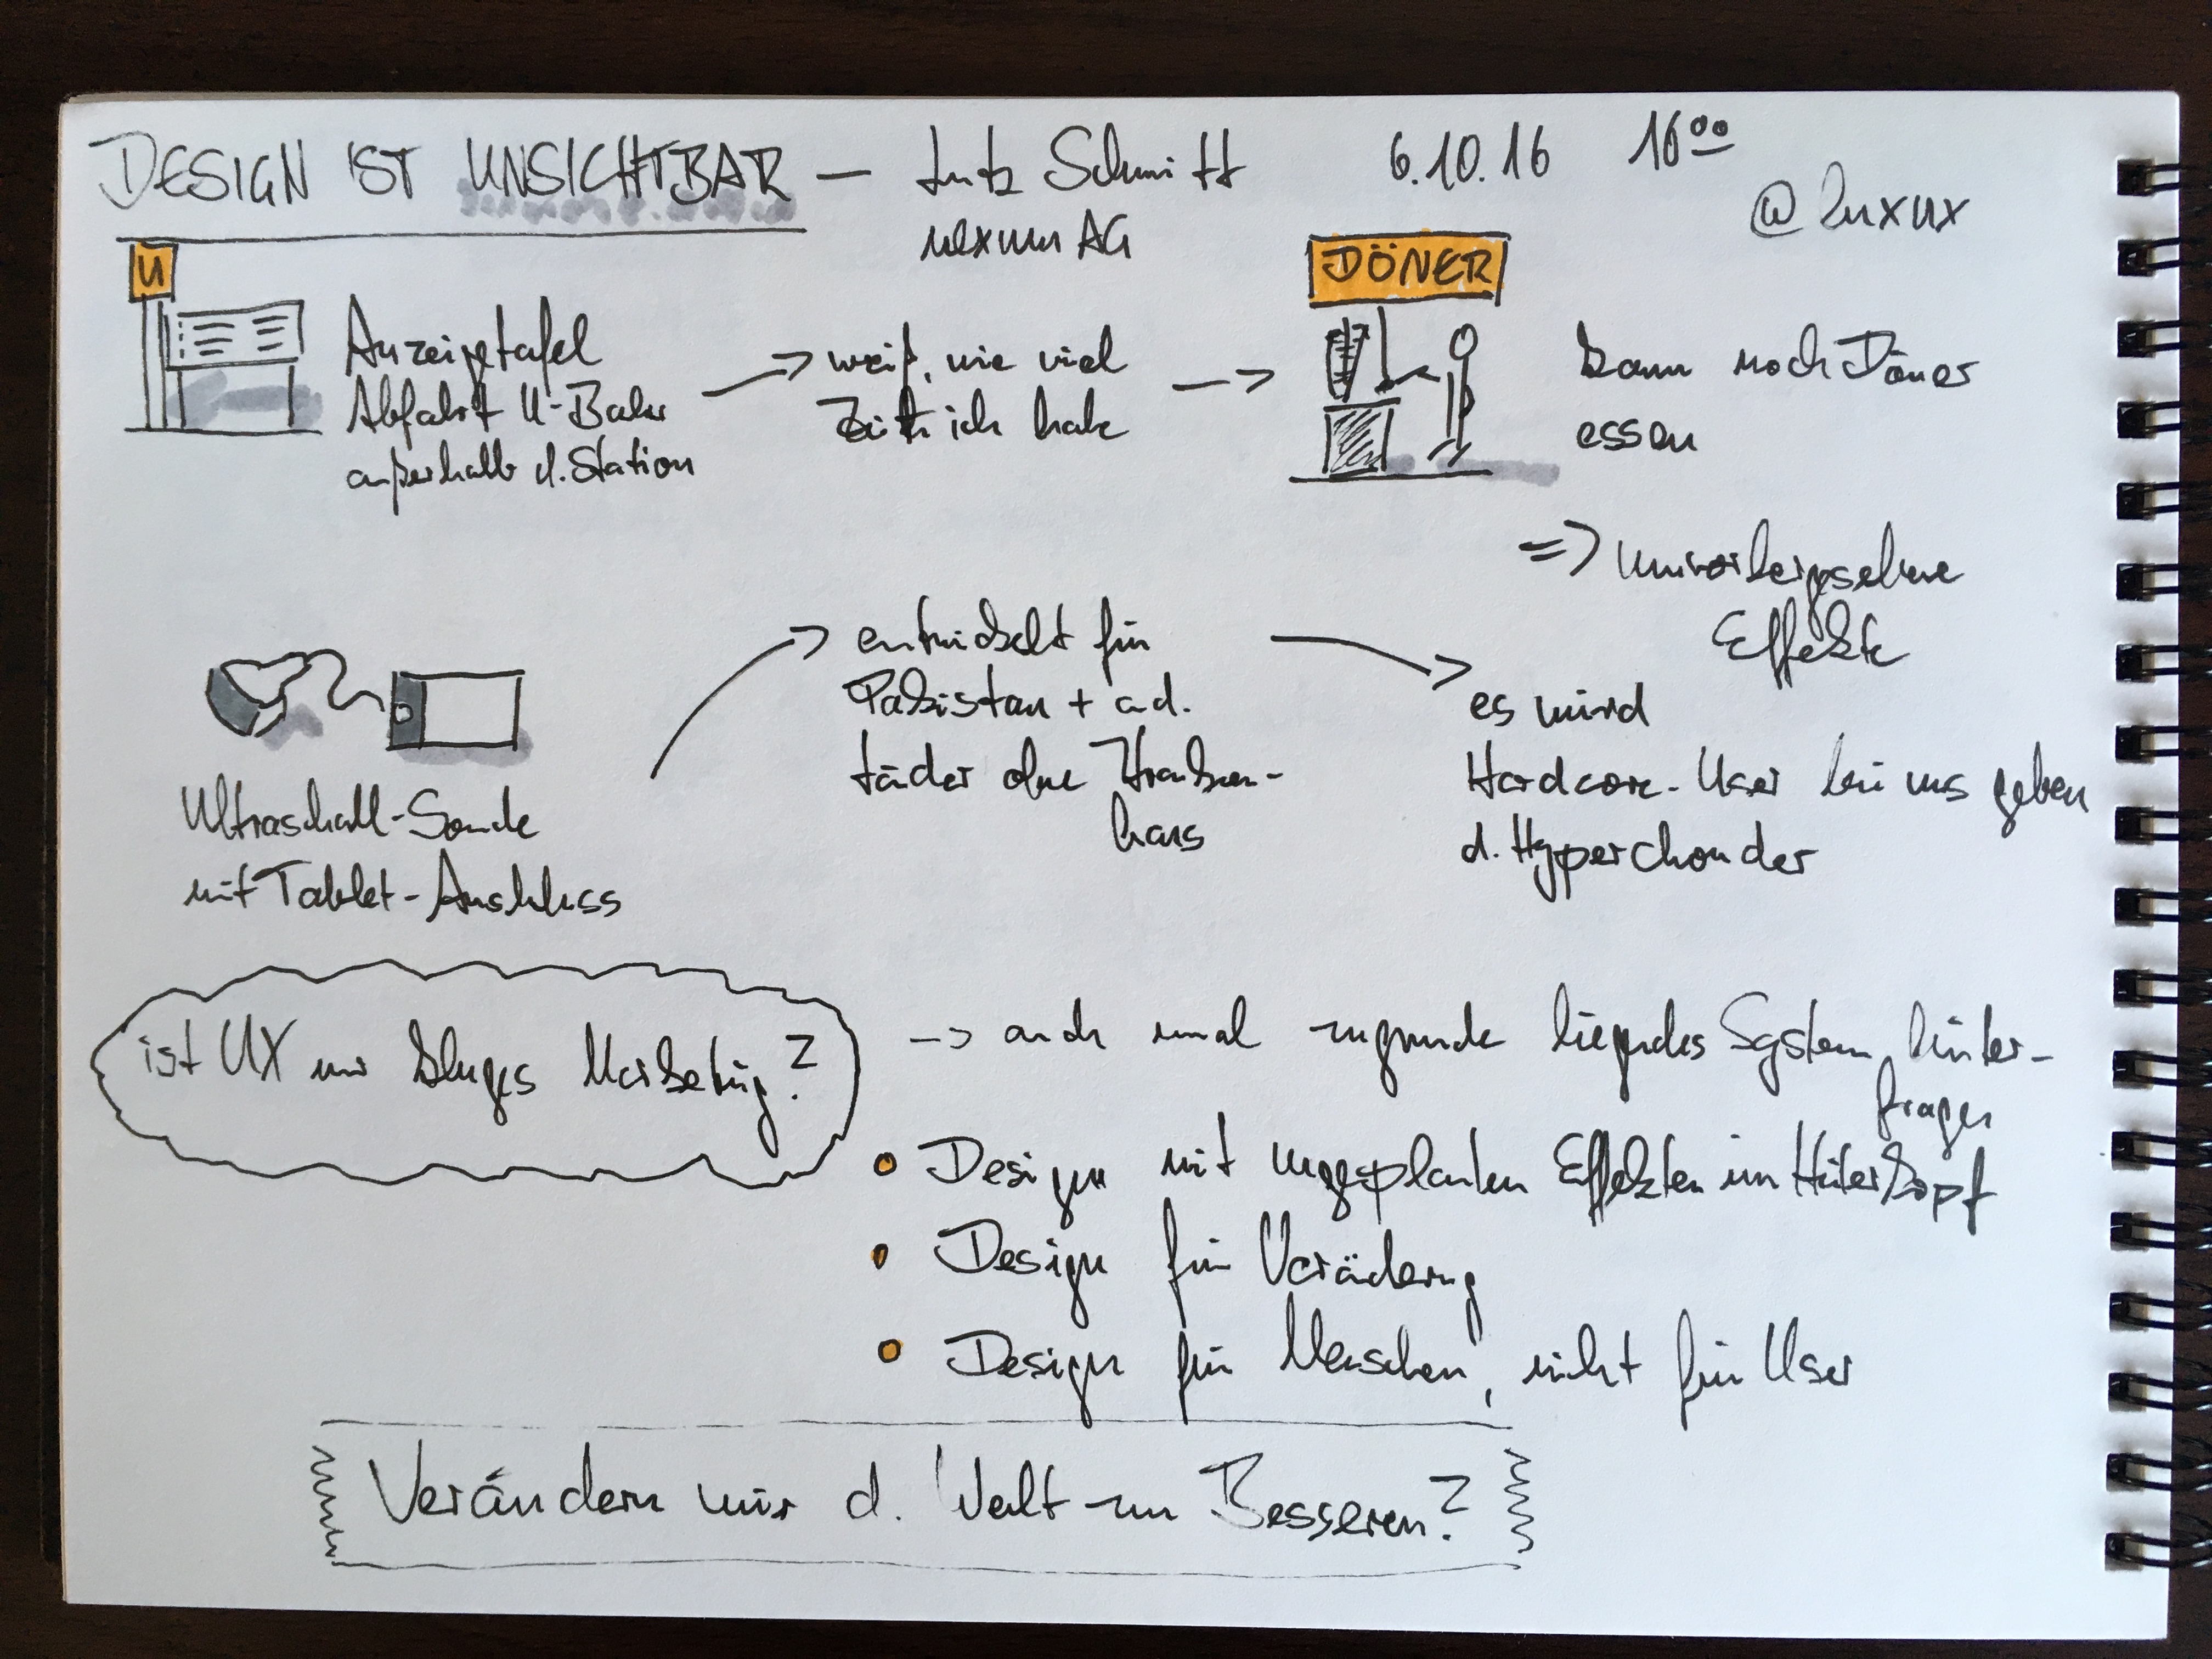 DESIGN IST UNSICHTBAR — Lutz Schmitt 6.10.16 16⁰⁰
nexum AG
@luxux
U
Anzeigetafel
Abfahrt U-Bahn
außerhalb d. Station
-> weiß, wie viel
Zeit ich habe
->
DÖNER
kann noch Döner
essen
=> unvorhergesehene
Effekte
Ultraschall-Sonde
mit Tablet-Anschluss
-> entwickelt für
Pakistan + and.
Länder ohne Kranken-
haus
-> es wird
Hardcore-User bei uns geben
d. Hyperchonder
ist UX nur kluges Marketing?
-> auch mal zugrunde liegendes System hinter-
fragen
• Design mit ungeplanten Effekten im Hinterkopf
• Design für Veränderung
• Design für Menschen, nicht für User
Verändern wir d. Welt zum Besseren?